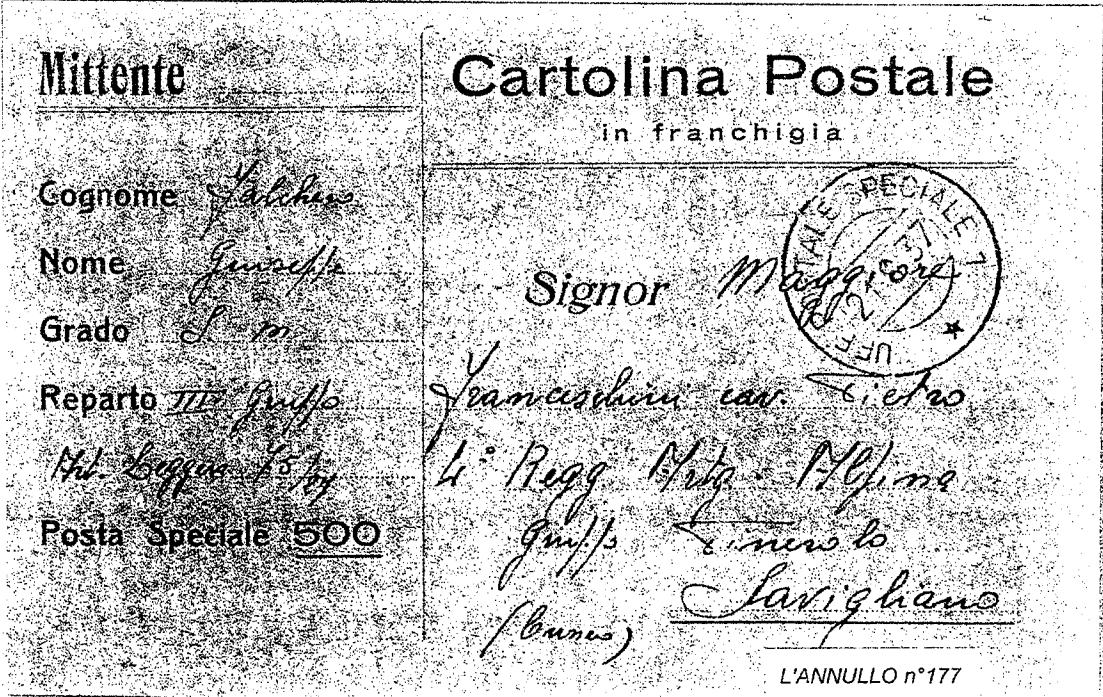 Mittente
Cognome Falchero
Nome Giuseppe
Grado S. m.
Reparto III Gruppo
Art. Leggera 75/27
Posta Speciale 500
Cartolina Postale
in franchigia
UFF POSTALE SPECIALE 7
21 8 37
Signor Maggiore
Franceschini cav. Pietro
4° Regg Artig. Alpina
Gruppo Pinerolo
Savigliano
(Cuneo)
L'ANNULLO n°177